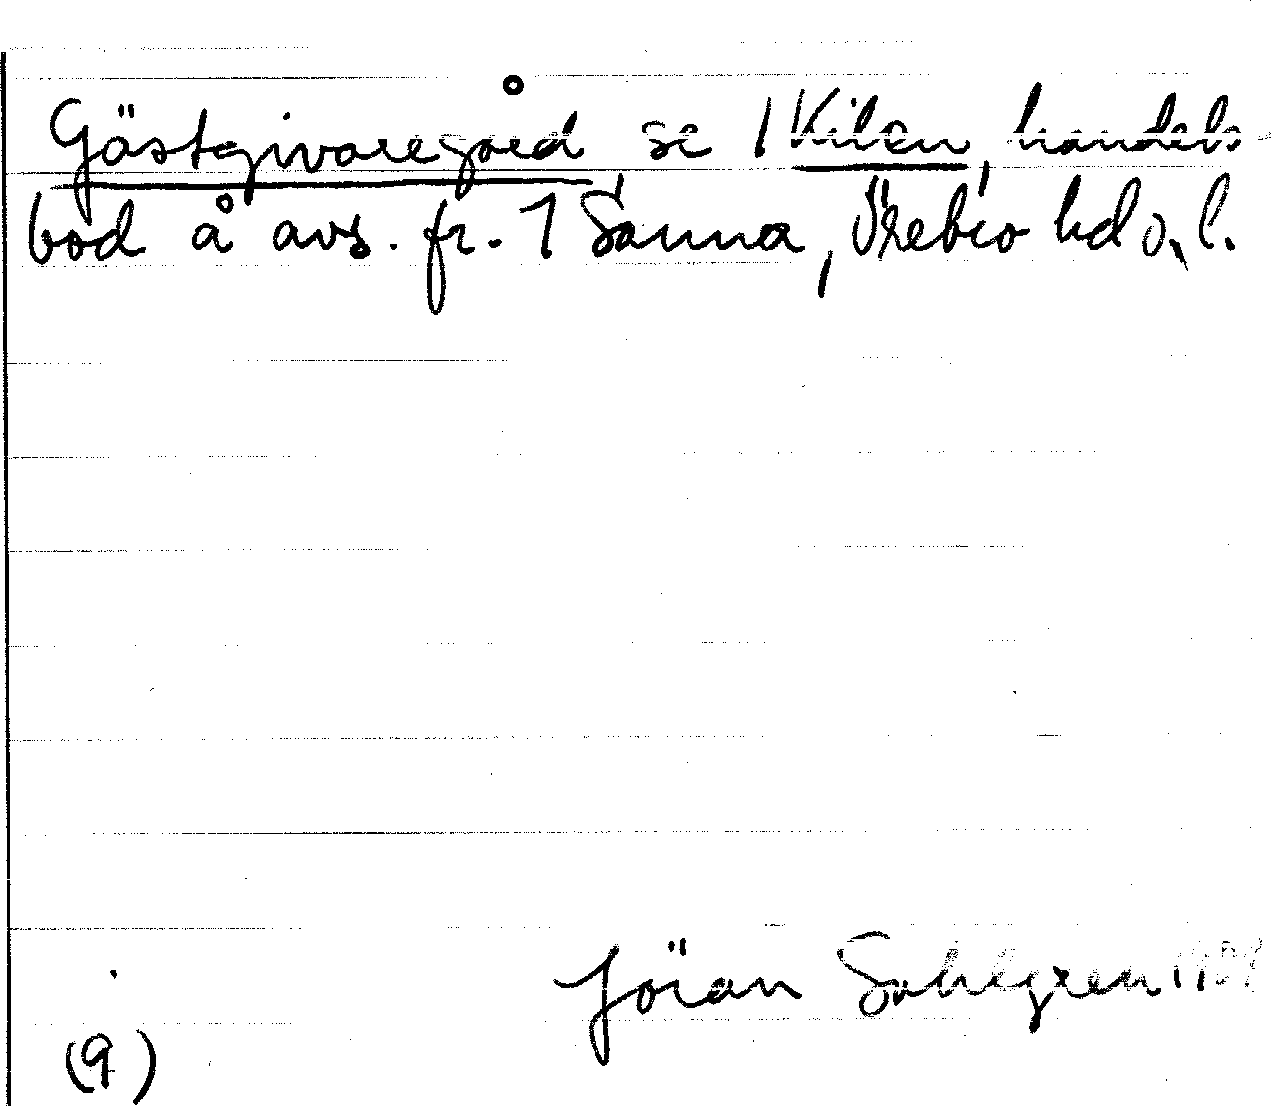 Gästgivaregård se 1 Kilen, handels-
bod å avs. fr. 1 Sanna, Örebro hd o. l.
Jöran Sahlgren
(9)